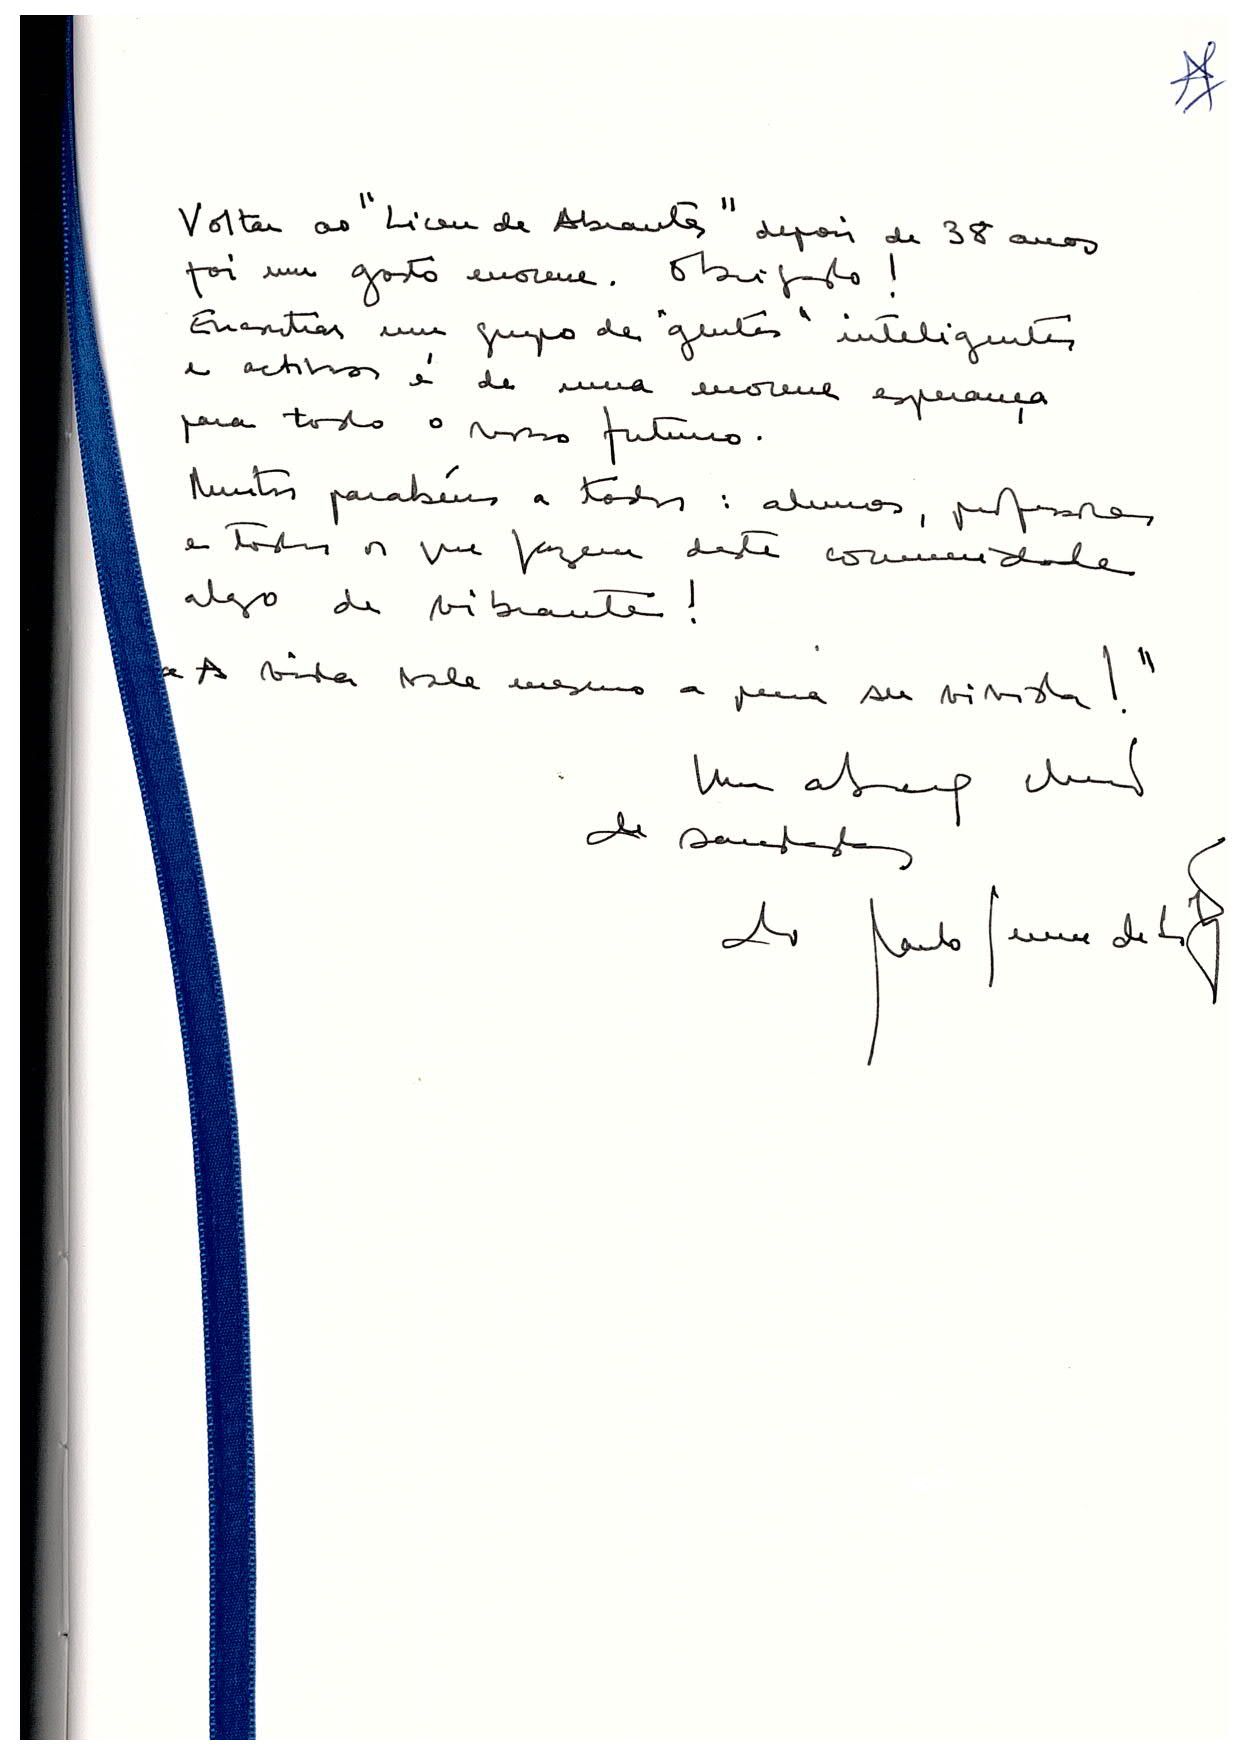 Voltar ao "Liceu de Abrantes" depois de 38 anos
foi um gosto enorme. Obrigado!
Encontrar um grupo de "gentes" inteligentes
e activos é de uma enorme esperança
para todo o nosso futuro.
Muitos parabéns a todos: alunos, professores
e todos os que fazem desta comunidade
algo de vibrante!
"A vida vale mesmo a pena ser vivida!"
Um abraço cheio
de saudades
do Paulo